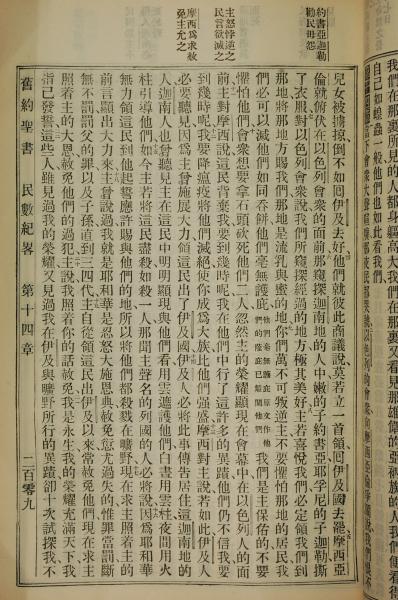 約書亞迦勒
勸民毋怨
主怒悖逆之
民言欲滅之
摩西爲求赦
免主允之
兒女被擄掠倒不如回伊及去好他們就彼此商議說莫若立一首領回伊及國去罷摩西亞
倫就俯伏在以色列會衆的面前那窺探迦南地的人中嫩的子約書亞耶孚尼的子迦勒撕
了衣服對以色列會衆說我們所窺探經過的地方極其美好主若喜悅我們必定領我們到
那地將那地方賜我們那地是流乳與蜜的地你們萬不可叛逆主不要懼怕那地的居民我
們必可以滅他們如同吞餅他們毫無護庇
我們是主保佑的不要
懼怕他們會衆想要拿石頭砍死他們二人忽然主的榮耀顯現在會幕中在以色列人的面
前主對摩西說這民背棄我要到幾時呢我在他們中行了這許多的異蹟他們仍不信我要
到幾時呢我要降瘟疫將他們滅絕使你成爲大族比他們强盛摩西對主說若如此伊及人
必要聽見因爲主曾施展大力領這民出了伊及國伊及人必將此事傳告居住這迦南地的
人迦南人也曾聽見主在這民中明明顯現與他們看用雲遮護他們白晝用雲柱夜間用火
柱引導他們如今主若將這民盡殺如殺一人那聞主聲名的列國的人必將說因爲耶和華
無力領這民到他起誓應許賜與他們的地所以將他們都殺戮在曠野現在求主
前言顯出大力來主曾說過我就是耶和華是忍怒大施恩典赦免愆尤過失的惟罪當罰斷
無不罰罰父的罪以及子孫直到三四代主自從領這民出伊及以來常赦免他們現在求主
照着主的大恩赦免他們的過犯主說我照着你的話赦免我是永生我的榮耀充滿天下我
指己發誓這些人雖見過我的榮耀又見過我在伊及與曠野所行的異蹟卻十次試探我不
舊約聖書 民數紀畧 第十四章 二百零九